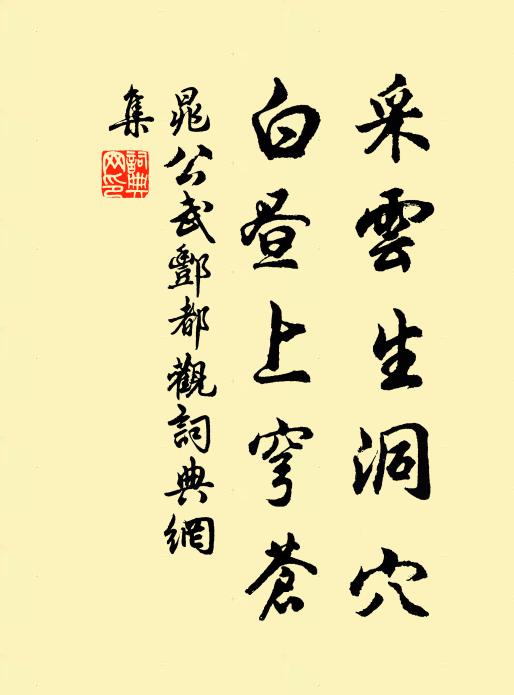 采雲生洞穴
白昼上穹蒼
晁公武酆都觀詞典網
集
詞典網印